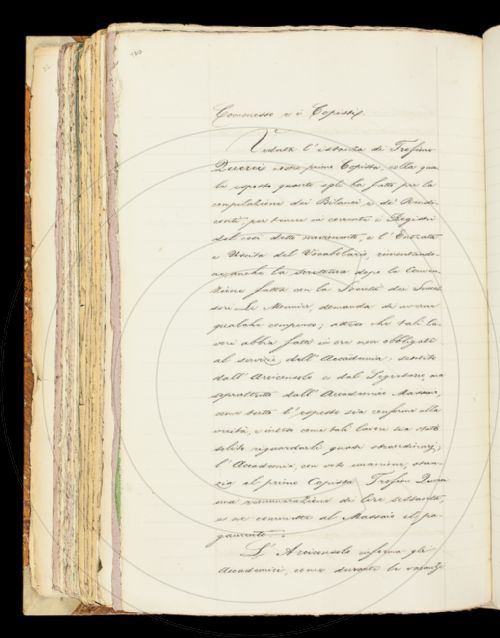 Commesso e i Copisti.
Veduta l'istanza di Trofimo
Querci nostro primo Copista, colla qua-
le esposto quanto egli ha fatto per la
compilazione dei Bilanci e de' Rendi-
conti, per tenere in corrente i Registri
del così detto movimento, e l'Entrata
e Uscita del Vocabolario, rinnovando-
ne anche la Scrittura dopo la Conven-
zione fatta con la Società dei Succes-
sori Le Monnier, domanda di averne
qualche compenso; atteso che tali la-
vori abbia fatti in ore non obbligate
al servizio dell'Accademia: sentito
dall'Arciconsolo e dal Segretario, ma
soprattutto dall'Accademico Massaio,
come tutto l'esposto sia conforme alla
verità, e come tali lavori sia stato
solito riguardarli quasi straordinarj;
l'Accademia, con voto unanime, stan-
zia al primo Copista Trofimo Querci
una remunerazione di lire sessanta,
e ne commette al Massaio il pa-
gamento.
L'Arciconsolo informa gli
Accademici, come durante le vacanze